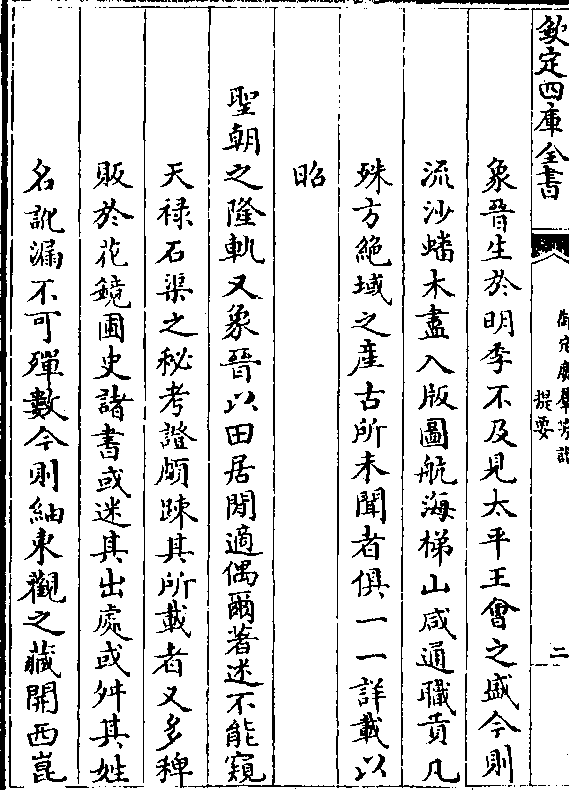 欽定四庫全書
御定廣羣芳譜
提要
二
象晉生於明季不及見太平王會之盛今則
流沙蟠木盡入版圖航海梯山咸通職貢凡
殊方絶域之産古所未聞者俱一一詳載以
昭
聖朝之隆軌又象晉以田居閒適偶爾著述不能窺
天禄石渠之秘考證頗踈其所載者又多稗
販於花鏡圃史諸書或迷其出處或舛其姓
名訛漏不可殫數今則紬東觀之藏開西崑